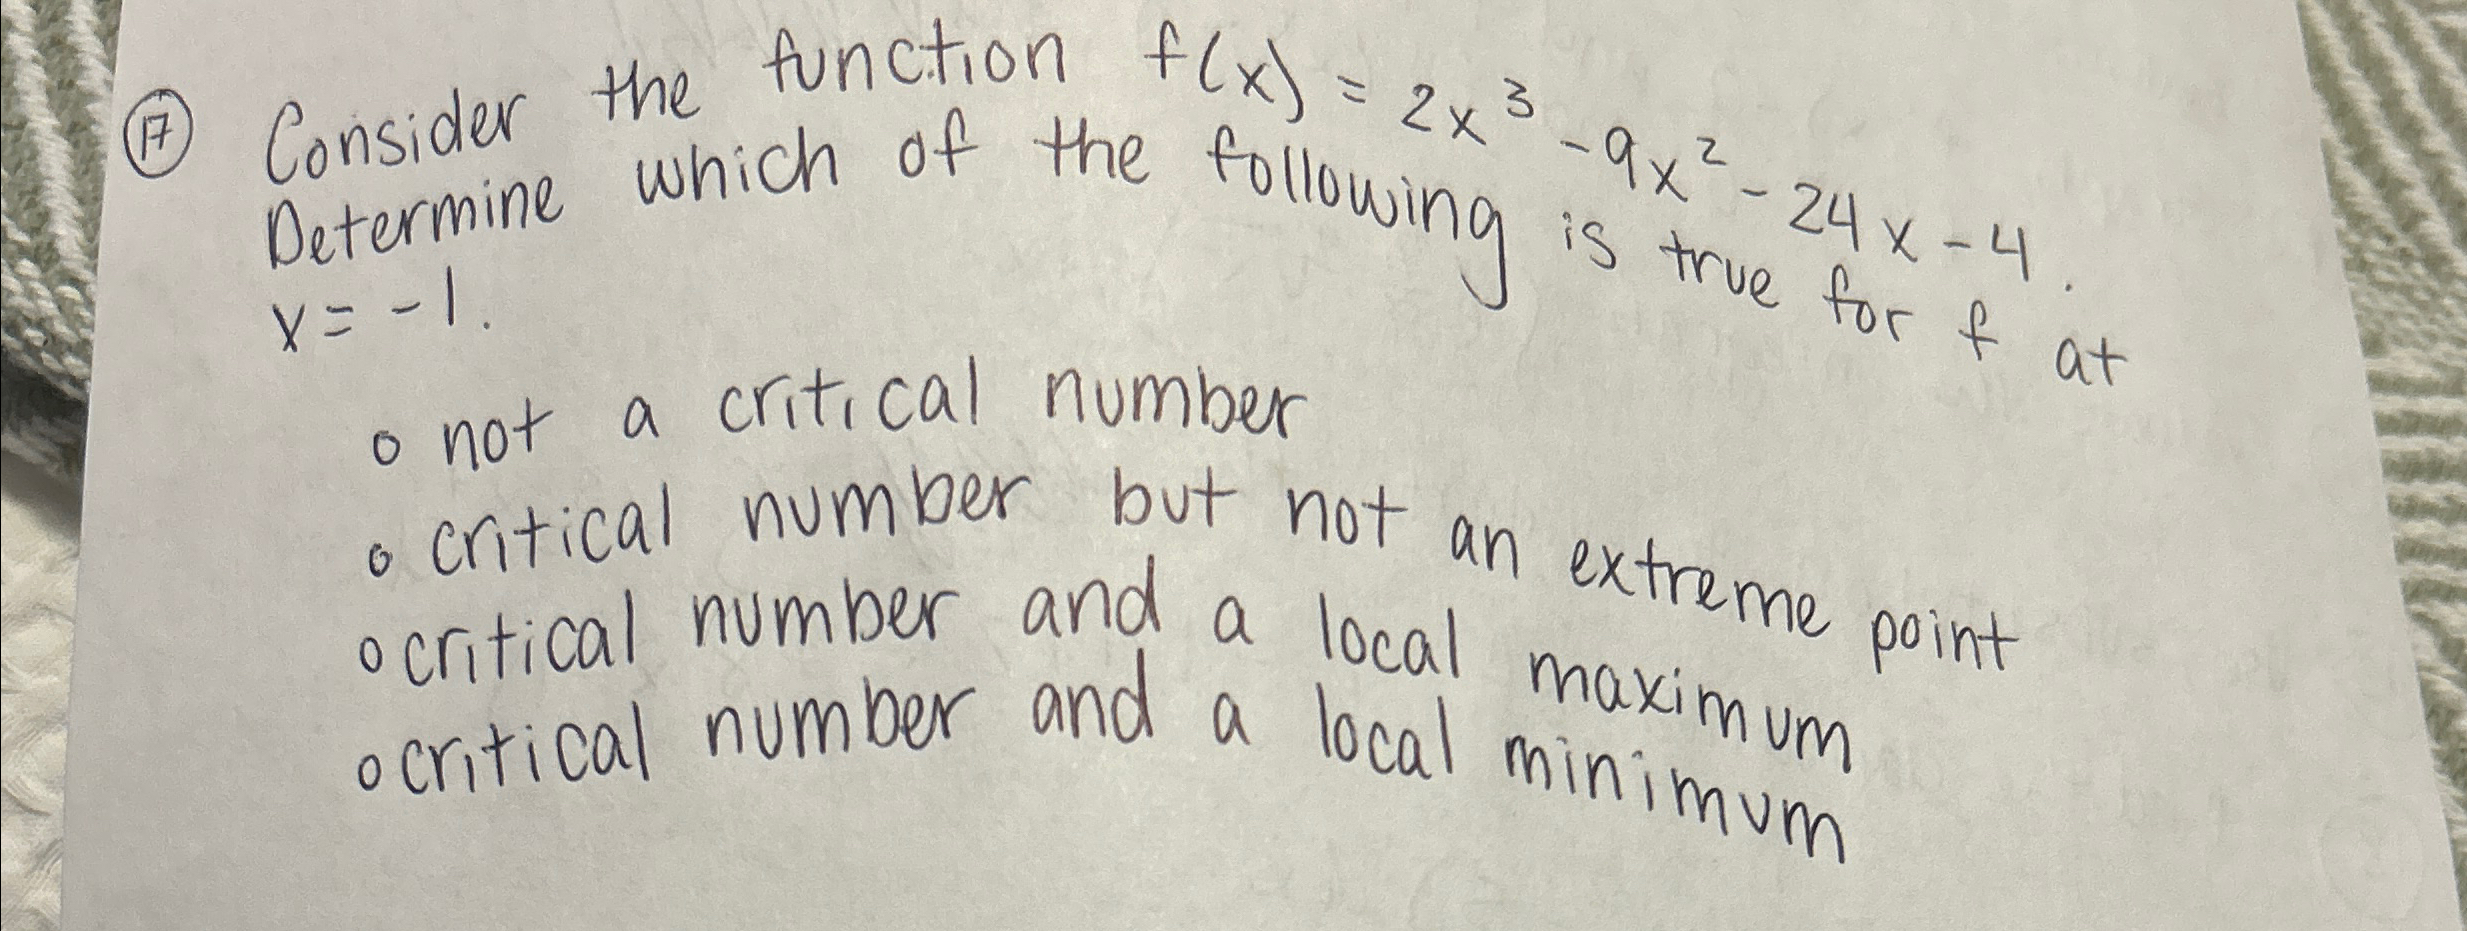 17 Consider the function f(x) = 2x³ - 9x² - 24x - 4.
Determine which of the following is true for f at
x = -1.
o not a critical number
o critical number but not an extreme point
o critical number and a local maximum
o critical number and a local minimum